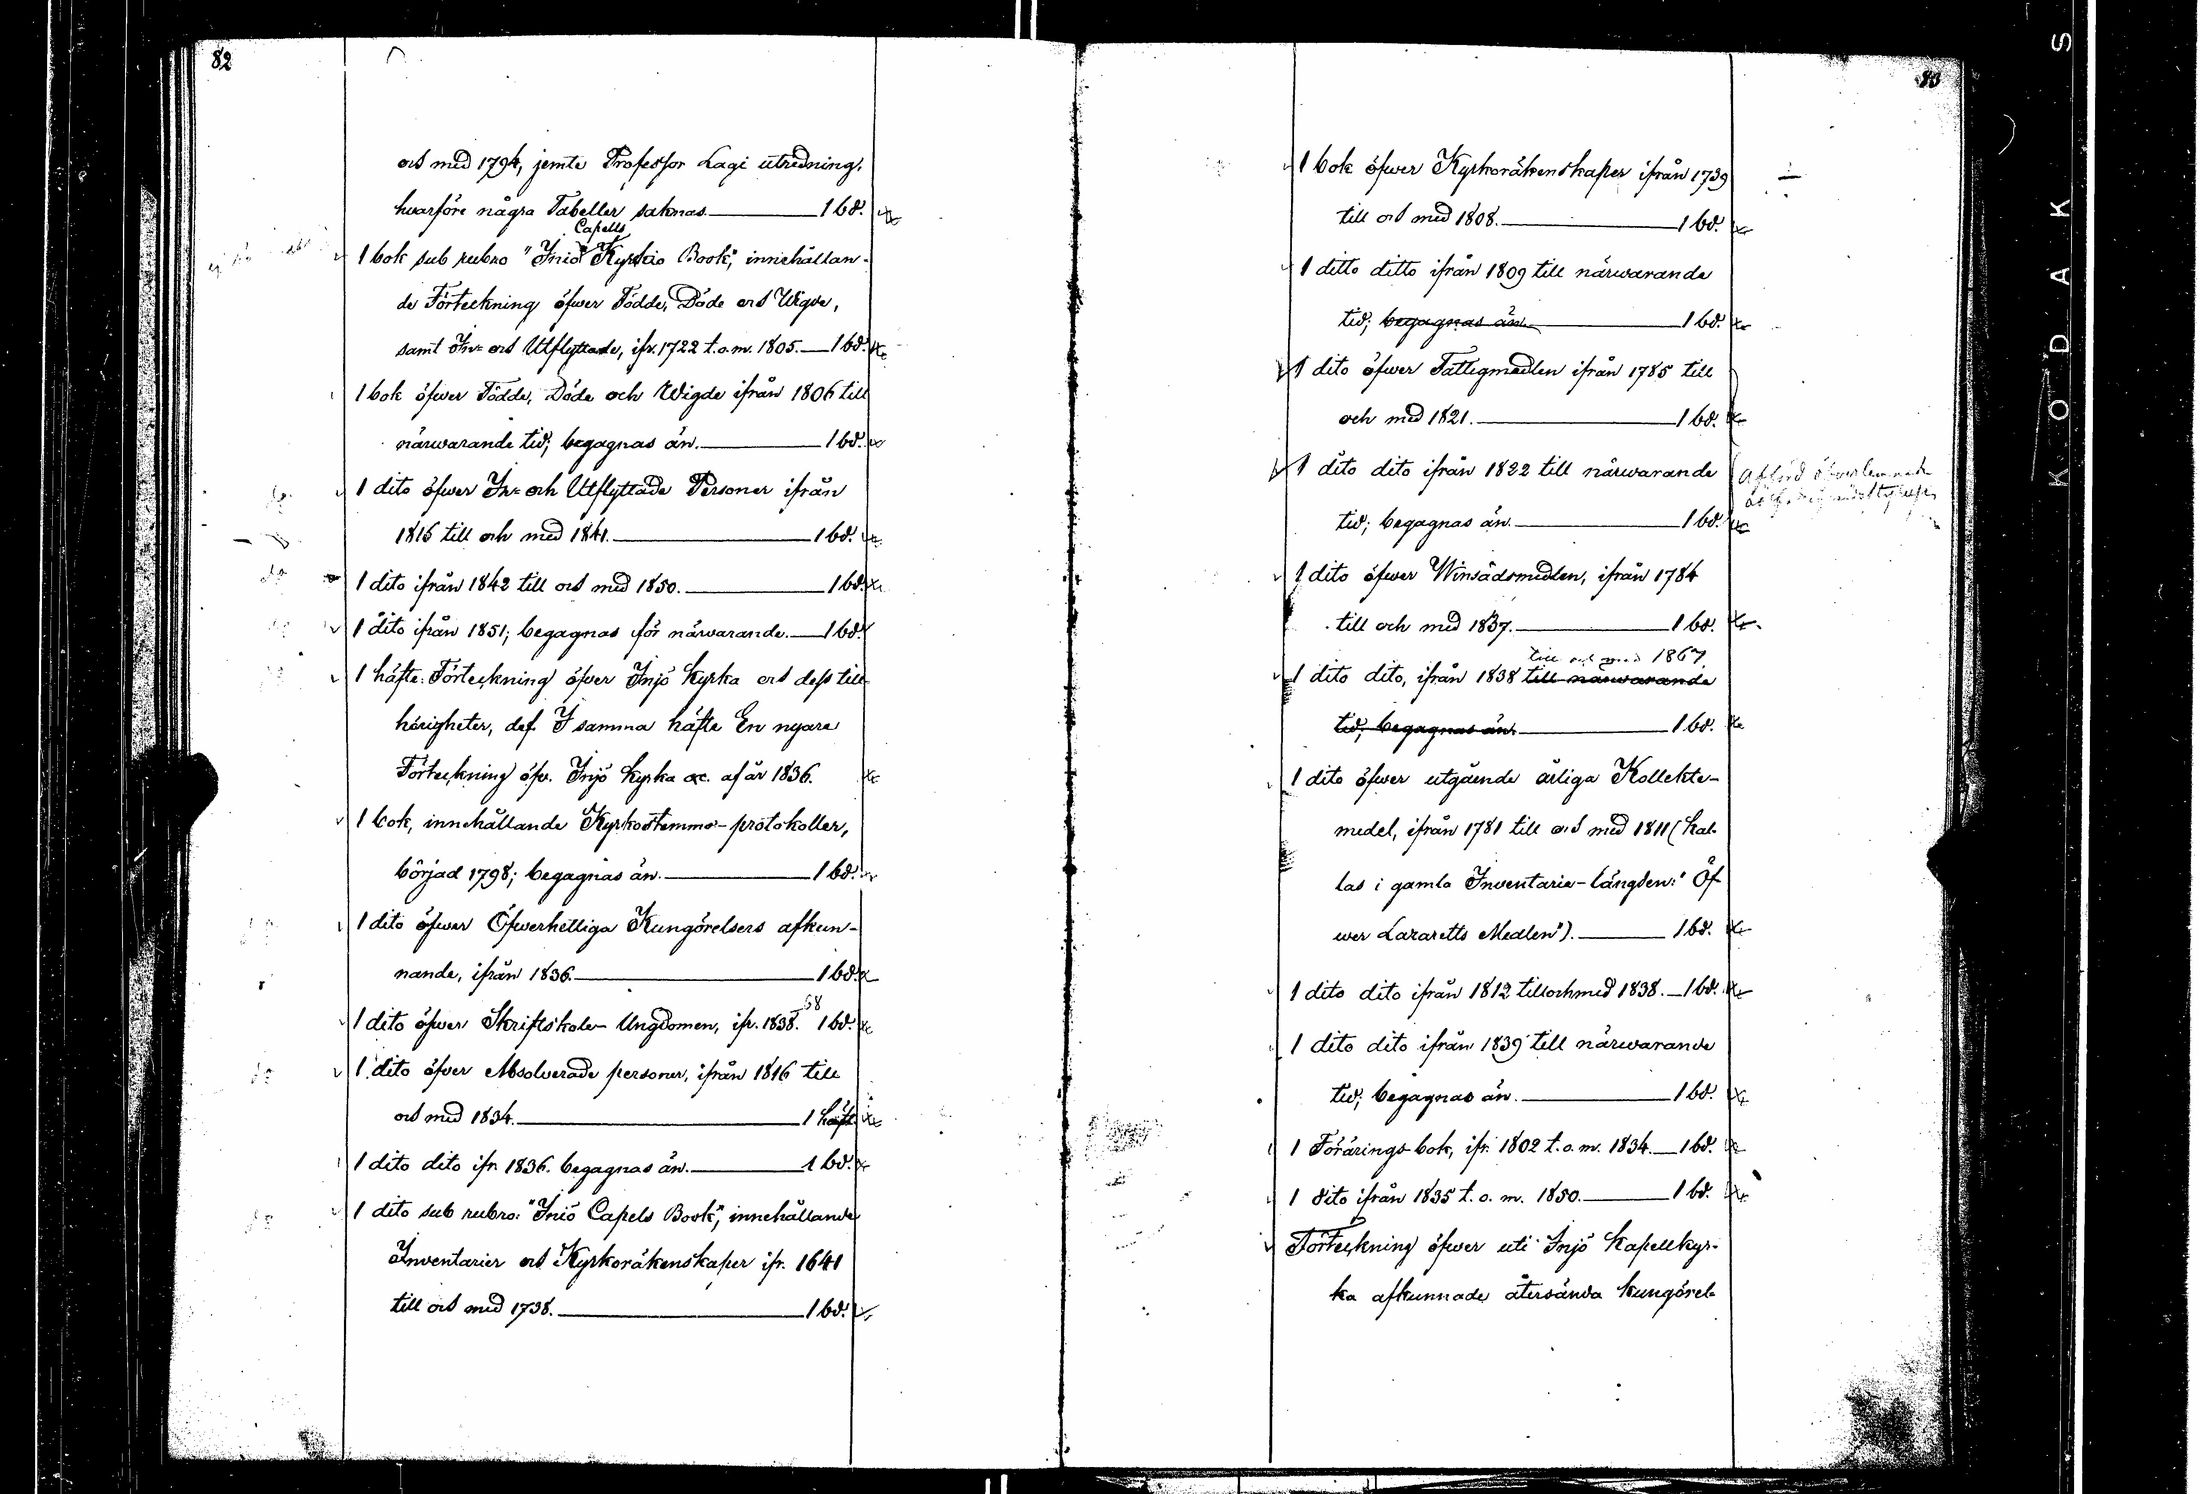 82
och med 1794, jemte Professor Lagi utredning,
hvarföre några Tabeller saknas. 1 bd.
Capells
1 bok sub rubro "Iniö Kyrkio Book", innehållan-
de Förteckning öfwer Födde, Döde och Wigde,
samt In- och Utflyttade, ifr. 1722 t.o.m. 1805. 1 bd.
1 bok öfwer Födde, Döde och Wigde ifrån 1806 till
närwarande tid; begagnas än. 1 bd.
1 dito öfwer In- och Utflyttade Personer ifrån
1815 till och med 1841. 1 bd.
1 dito ifrån 1842 till och med 1850. 1 bd.
1 dito ifrån 1851; begagnas för närwarande. 1 bd.
1 häfte: Förteckning öfver Injö Kyrka och dess till-
hörigheter, def. I samma häfte En nyare
Förteckning öfv. Injö Kyrka &c. af år 1836.
1 bok, innehållande Kyrkostemmo-protokoller,
började 1798; begagnas än. 1 bd.
1 dito öfwer Öfwerhetliga Kungörelsers afkun-
nande, ifrån 1836. 1 bd.
58
1 dito öfwer Skriftskole-Ungdomen, ifr. 1838. 1 bd.
1 dito öfver Absolverade personer, ifrån 1816 till
och med 1834. 1 häft.
1 dito dito ifr. 1836. begagnas än. 1 bd.
1 dito sub rubro: "Iniö Capels Book", innehållande
Inventarier och Kyrkoräkenskaper ifr. 1641
till och med 1738. 1 bd.
83
1 bok öfwer Kyrkoräkenskaper ifrån 1739
till och med 1808. 1 bd.
1 ditto ditto ifrån 1809 till närwarande
tid; begagnas än. 1 bd.
1 dito öfwer Fattigmedlen ifrån 1785 till
och med 1821. 1 bd.
1 dito dito ifrån 1822 till närwarande
tid; begagnas än. 1 bd.
1 dito öfwer Winsådsmedlen, ifrån 1784
till och med 1837. 1 bd.
till och med 1867.
1 dito dito, ifrån 1838 till närwarande
tid; begagnas än. 1 bd.
1 dito öfwer utgående årliga Kollekte-
medel, ifrån 1781 till och med 1811 (kal-
las i gamla Inventarie-längden: "Öf-
wer Lazaretts Medlen"). 1 bd.
1 dito dito ifrån 1812 till och med 1838. 1 bd.
1 dito dito ifrån 1839 till närwarande
tid; begagnas än. 1 bd.
1 Förärings-bok, ifr. 1802 t.o.m. 1834. 1 bd.
1 dito ifrån 1835 t. o. m. 1850. 1 bd.
Förteckning öfwer uti Injö Kapellkyr-
ka afkunnade återsända kungörel-
KODAK S